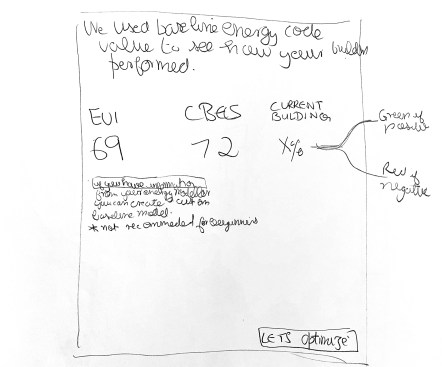 We used baseline energy code
value to see how your buildin
performed.
EUI
CBES
CURRENT
BUILDING
69
72
X%
Green if
positive
Red if
negative
if you have information
from your energy modeler
you can create custom
baseline model.
* not recommended for beginners
LETS optimize